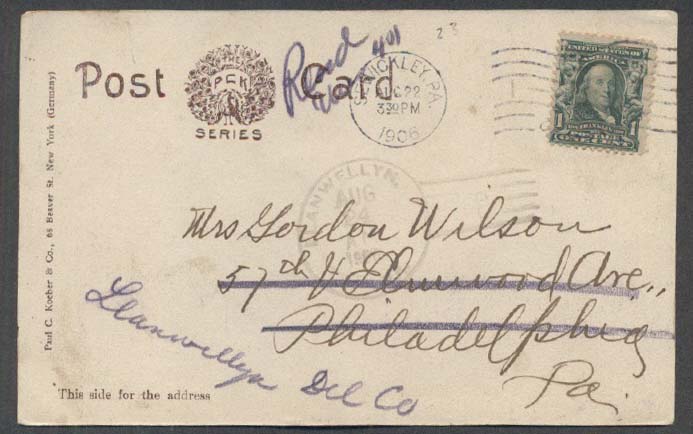 Post Card
THE
P.C.K
SERIES
SEWICKLEY, PA.
AUG 22
330 PM
1906
UNITED STATES OF AMERICA
1 1
ONE CENT
LLANWELLYN,
AUG
24
Mrs Gordon Wilson
57th & Elmwood Ave.,
Philadelphia
Pa.
Llanwellyn
Del Co
This side for the address
Paul C. Koeber & Co., 85 Beaver St. New York (Germany)